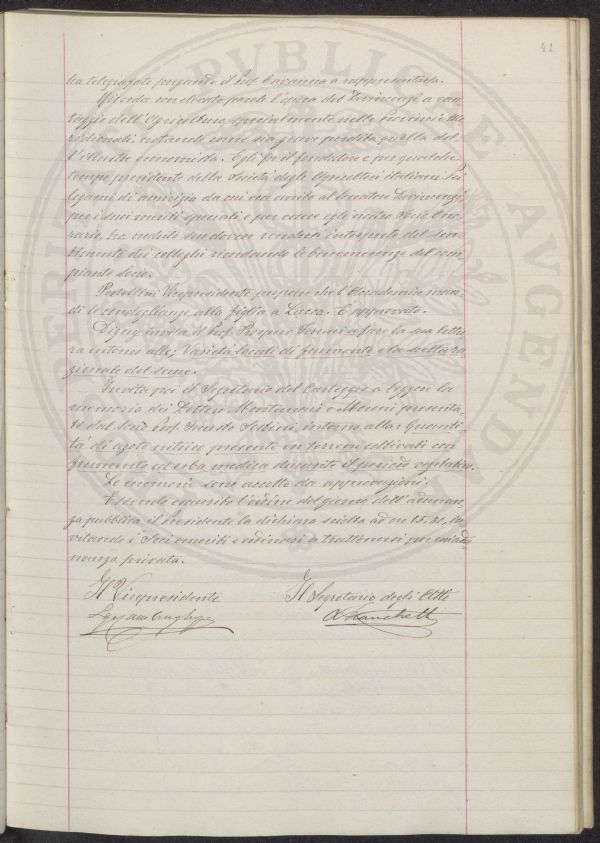 41
ha telegrafato pregando il Prof. Caruana a rappresentarla.
Ricorda con elevate parole l'opera del Devincenzi a van-
taggio dell'Agricoltura specialmente nelle Provincie Me-
ridionali; notando come sia grave perdita quella del-
l'illustre economista. Egli fu il fondatore e per qualche
tempo presidente della Società degli Agricoltori italiani. Pei
legami di amicizia da cui era unito al Senatore Devincenzi,
per i suoi meriti speciali e per essere egli nostro Socio Ono-
rario, ha creduto suo dovere rendersi interprete del sen-
timento dei colleghi ricordando le benemerenze del com-
pianto Socio.
Pestellini Vicepresidente propone che l'Accademia man-
di le condoglianze alla figlia a Lucca. È approvato.
Digny invita il Prof. Prospero Ferrari a fare la sua lettu-
ra intorno alle: Varietà locali di frumento e la scelta ra-
zionale del seme.
Invita poi il Segretario del Carteggio a leggere la
memoria dei Dottori Montanari e presenta-
ta dal Socio Prof. Fausto Sestini, intorno alla: Quanti-
tà di azoto nitrico presente in terreni coltivati con
frumento ed erba medica durante il periodo vegetativo.
Le memorie sono accolte da approvazioni.
Essendo esaurito l'ordine del giorno dell'adunan-
za pubblica il Presidente la dichiara sciolta ad ore 15.30, in-
vitando i Soci emeriti e ordinari a trattenersi per un'adu-
nanza privata.
Il Vicepresidente Il Segretario degli Atti
PUBLICAE AVGENDAE